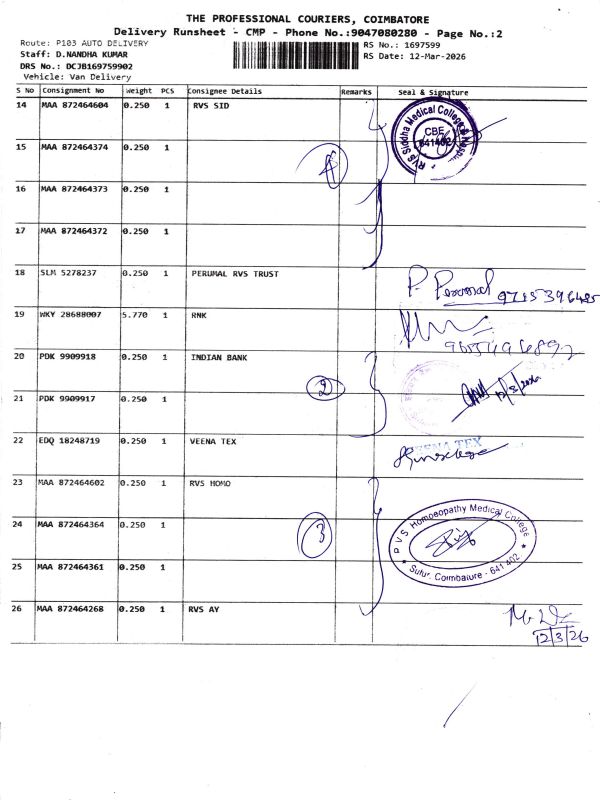 THE PROFESSIONAL COURIERS, COIMBATORE
Delivery Runsheet - CMP - Phone No.:9047080280 - Page No.:2
Route: P103 AUTO DELIVERY
RS No.: 1697599
Staff: D.NANDHA KUMAR
RS Date: 12-Mar-2026
DRS No.: DCJB169759902
Vehicle: Van Delivery
S No Consignment No Weight PCS Consignee Details Remarks Seal & Signature
14 MAA 872464604 0.250 1 RVS SID
RVS Siddha Medical College &
CBE
641402
15 MAA 872464374 0.250 1
4
16 MAA 872464373 0.250 1
17 MAA 872464372 0.250 1
18 SLM 5278237 0.250 1 PERUMAL RVS TRUST
P. Perumal
19 WKY 28688007 5.770 1 RNK
20 PDK 9909918 0.250 1 INDIAN BANK
2
12/3/2026
21 PDK 9909917 0.250 1
22 EDQ 18248719 0.250 1 VEENA TEX
VEENA TEX
23 MAA 872464602 0.250 1 RVS HOMO
R V S Homoeopathy Medical College
Sulur, Coimbatore - 641 402
24 MAA 872464364 0.250 1
3
25 MAA 872464361 0.250 1
26 MAA 872464268 0.250 1 RVS AY
12/3/26